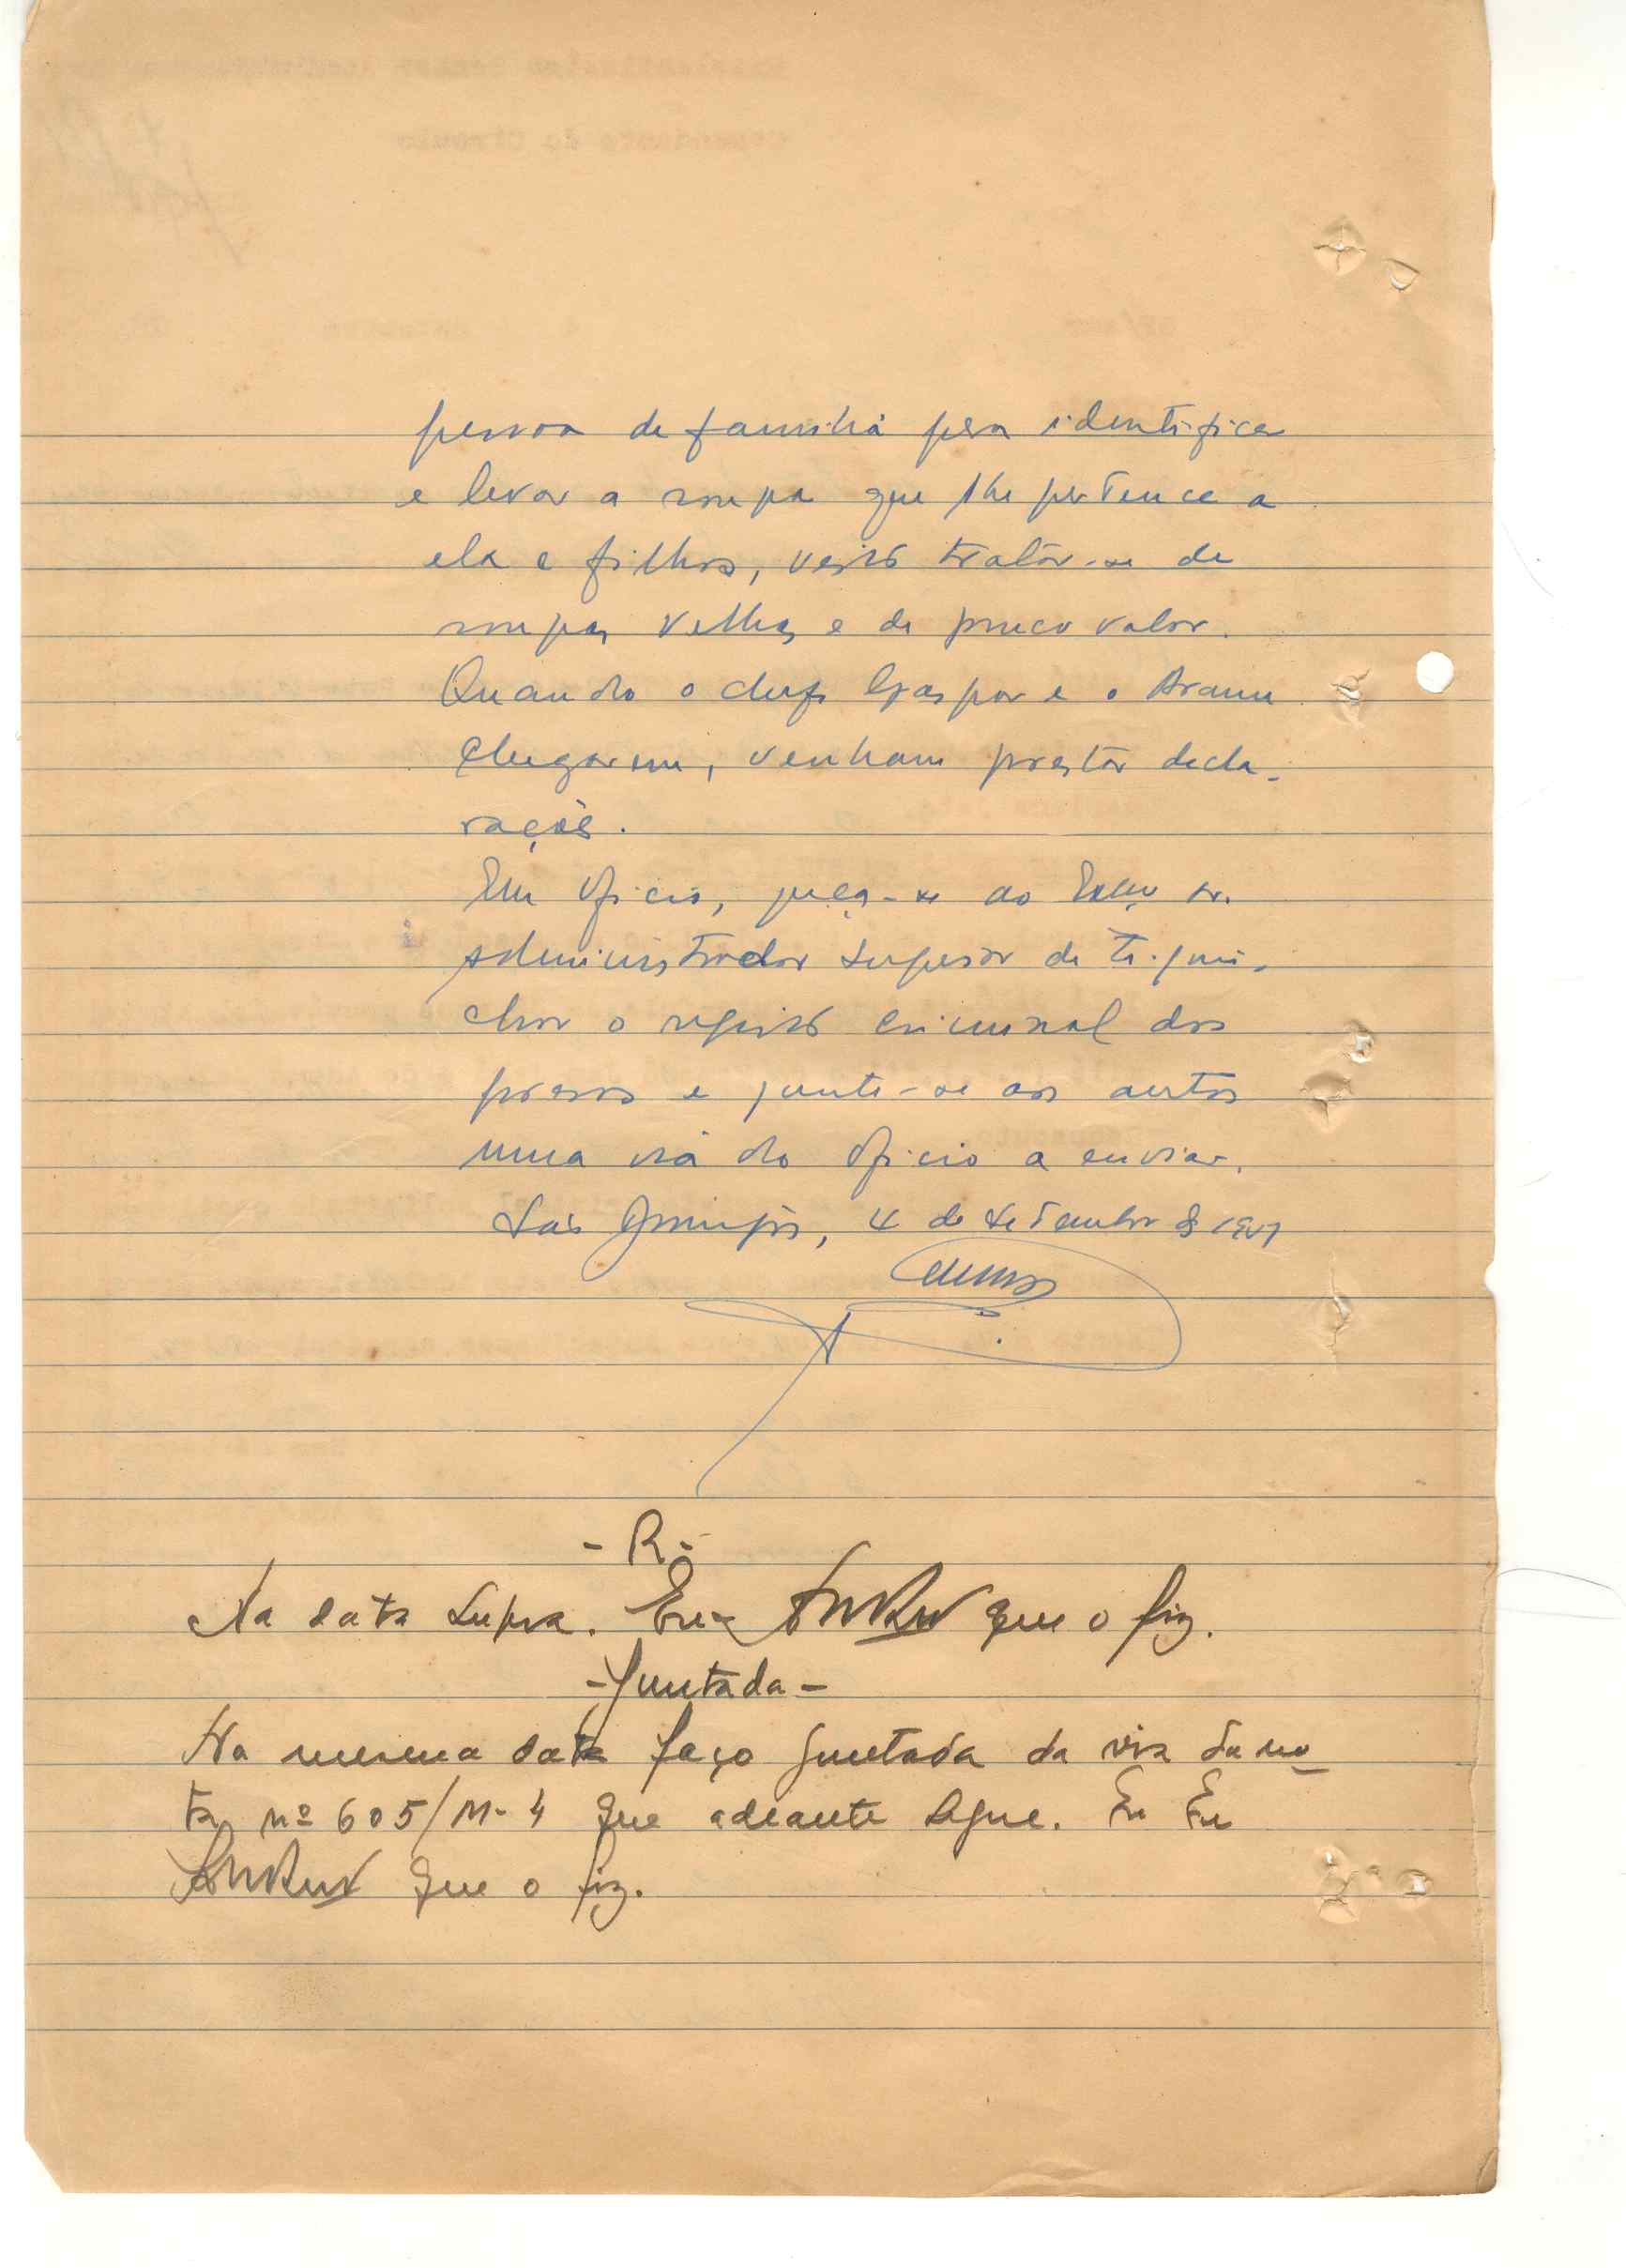 pessoa de familia pera identificar
e levar a roupa que lhe pertence a
ela e filhos, visto tratar-se de
roupas velhas e de pouco valor.
Quando o chefe Gaspar e o
chegarem, venham prestar decla-
rações.
Em oficio, peça-se ao Exmº sr.
administrador de
o registo criminal dos
presos e junte-se aos autos
uma via do oficio a enviar.
4 de Setembro de
- R -
Na data supra. Eu que o fiz.
- Juntada -
Na mesma data faço juntada da via da no
ta nº 605/M-4 que adeante segue. Eu Eu
que o fiz.